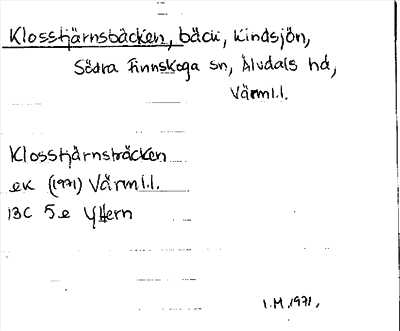 Klosstjärnsbäcken, bäck, Kindsjön,
Södra Finnskoga sn, Älvdals hd,
Värml.l.
Klosstjärnsbäcken
ek (1971) Värml.l.
13C 5e Yttern
I.M. 1971.